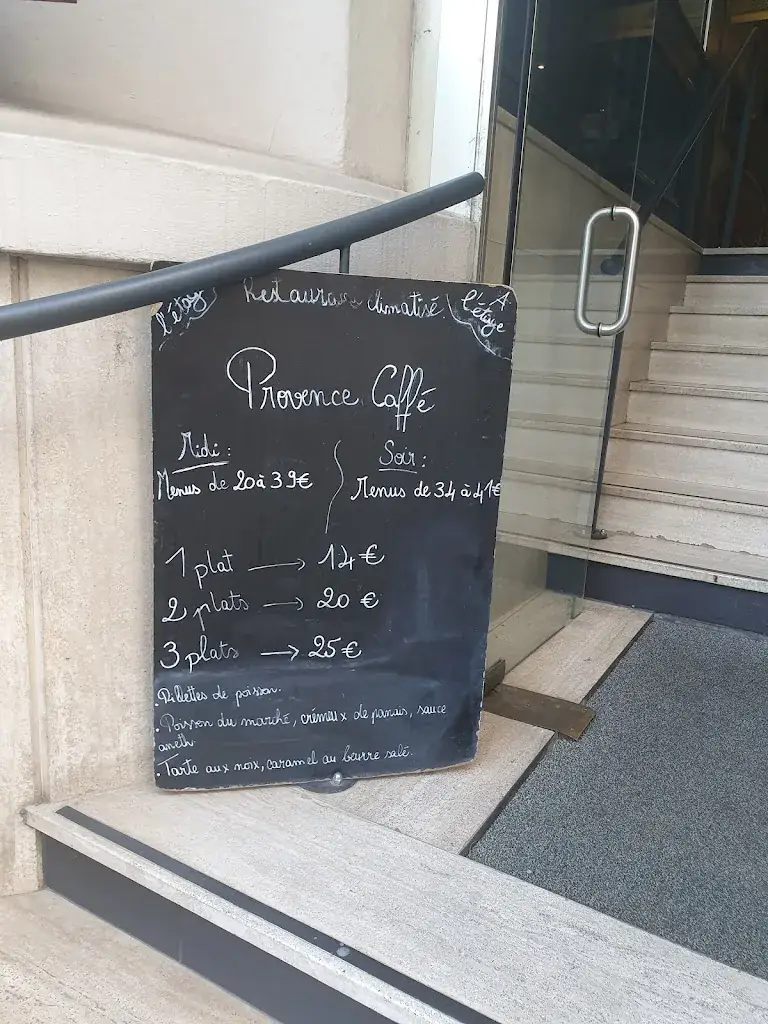 l'étage
Restaurant climatisé
A
l'étage
Provence Caffé
Midi :
Menus de 20 à 39€
Soir :
Menus de 34 à 41€
1 plat → 14 €
2 plats → 20 €
3 plats → 25€
. Rillettes de poisson.
. Poisson du marché, crémeux de panais, sauce
aneth
. Tarte aux noix, caramel au beurre salé.